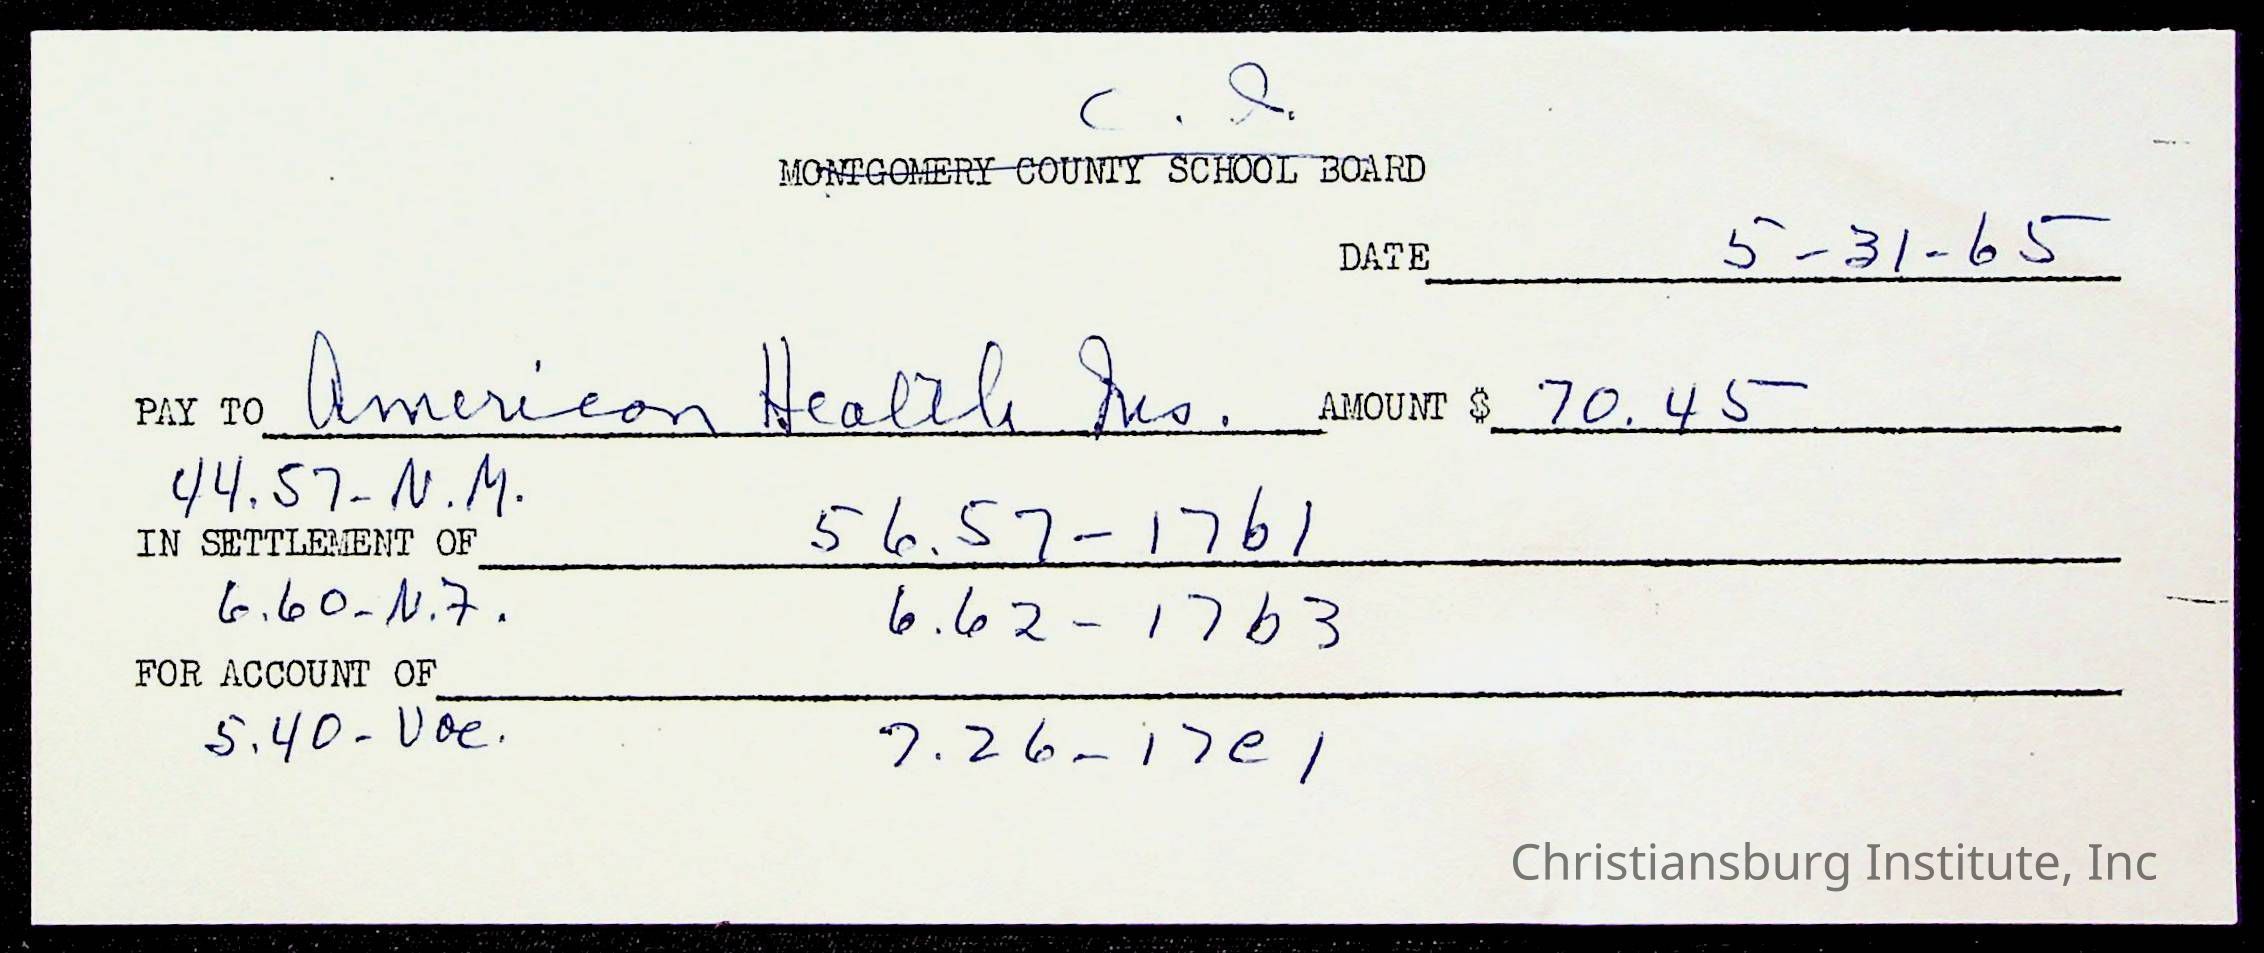 C. I.
MONTGOMERY COUNTY SCHOOL BOARD
DATE 5-31-65
PAY TO American Health Ins. AMOUNT $ 70.45
44.57-N.M.
IN SETTLEMENT OF 56.57-17b1
6.60-N.F. 6.62-17b3
FOR ACCOUNT OF
5.40-Voc. 7.26-17e1
Christiansburg Institute, Inc